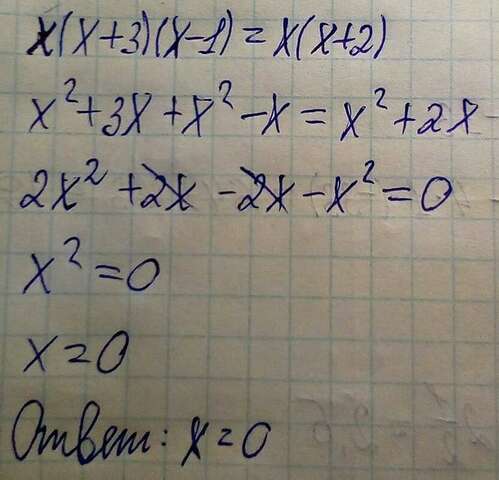 x(x+3)(x-1)=x(x+2)
x²+3x+x²-x=x²+2x
2x²+2x-2x-x²=0
x²=0
x=0
Ответ: x=0